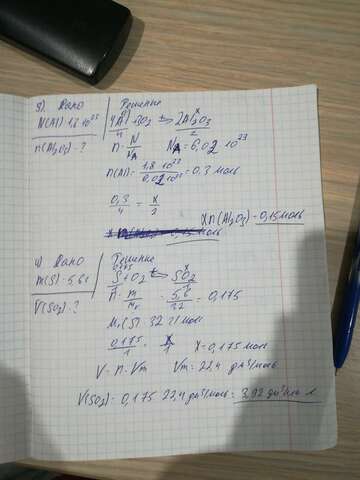 3) Дано
Решение
N(Al) 1,8 · 10²³
n(Al₂O₃) - ?
x
4Al 3O₂ ⇄ 2Al₂O₃
4 2
n = N/NA NA = 6,02 10²³
n(Al) = 1,8 10²³ / 6,02 10²³ = 0,3 моль
0,3/4 = x/2
x n(Al₂O₃) = 0,15 моль
4) Дано
Решение
m(S) = 5,6 г
V(SO₂) - ?
0,175 x
S + O₂ ⇄ SO₂
1 1
n = m/Mr = 5,6/32 = 0,175
Mr(S) 32 г/моль
0,175/1 = x/1 x = 0,175 моль
V = n · Vm Vm = 22,4 дм³/моль
V(SO₂) = 0,175 22,4 дм³/моль = 3,92 дм³ или л